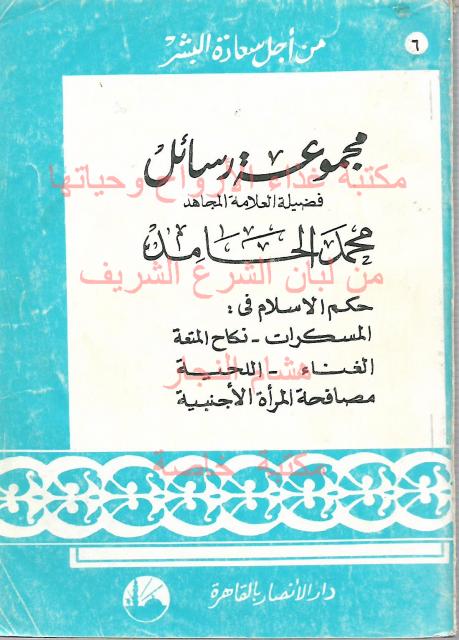 ٦
من أجل سعادة البشر
مجموعة رسائل
مكتبة غذاء الأرواح وحياتها
فضيلة العلامة المجاهد
محمد الحامد
من لبان الشرع الشريف
حكم الاسلام فى :
المسكرات - نكاح المتعة
الغناء - اللحية
هشام النجار
مصافحة المرأة الأجنبية
مكتبة خاصة
دار الأنصار بالقاهرة